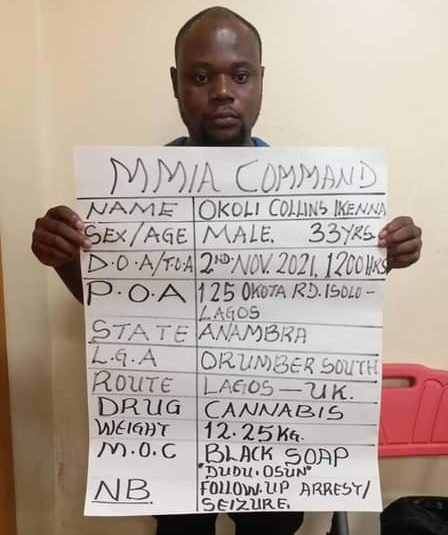 MMIA COMMAND
NAME OKOLI COLLINS IKENNA
SEX/AGE MALE. 33YRS.
D.O.A/T.O.A 2ND. NOV. 2021, 1200HRS
P.O.A 125 OKOTA RD. ISOLO -
LAGOS
STATE ANAMBRA
L.G.A ORUMBER SOUTH
ROUTE LAGOS — UK.
DRUG CANNABIS
WEIGHT 12.25KG.
M.O.C BLACK SOAP
"DUDU. OSUN"
NB. FOLLOW. UP ARREST/
SEIZURE.